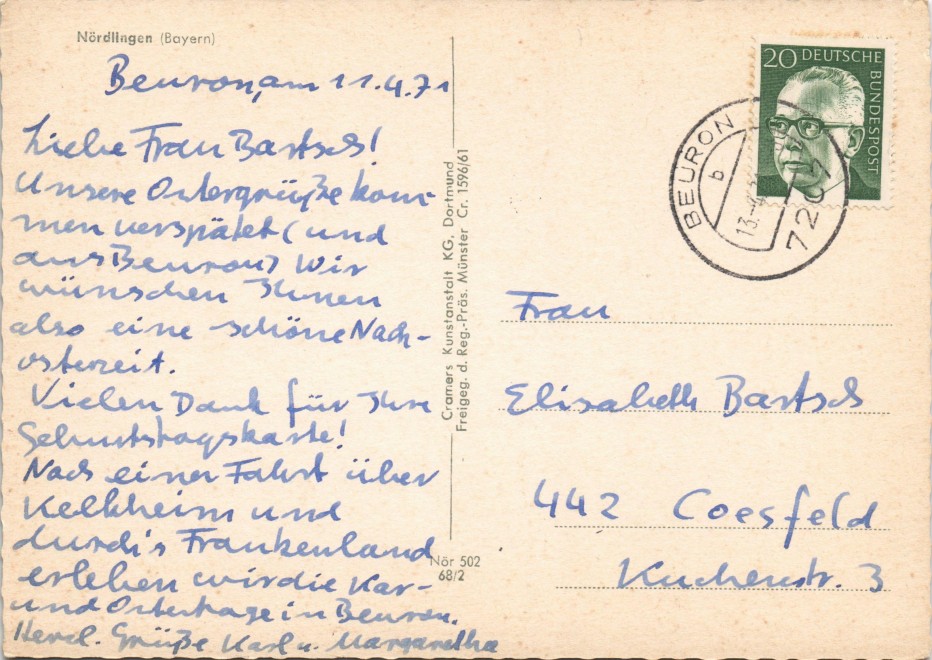 Nördlingen (Bayern)
Beuron, am 11.4.71
Liebe Frau Bartsch!
Unsere Ostergrüße kom-
men verspätet (und
aus Beuron) Wir
wünschen Ihnen
also eine schöne Nach-
osterzeit.
Vielen Dank für Ihre
Geburtstagskarte!
Nach einer Fahrt über
Kelkheim und
durch's Frankenland
erleben wir die Kar-
und Ostertage in Beuron.
Herzl. Grüße Karl u. Margaretha
Cramers Kunstanstalt KG, Dortmund
Freigeg. d. Reg.-Präs. Münster Cr. 1596/61
Nör 502
68/2
20 DEUTSCHE
BUNDESPOST
BEURON
b
13.-4.
7207
Frau
Elisabeth Bartsch
442 Coesfeld
Kuchenstr. 3